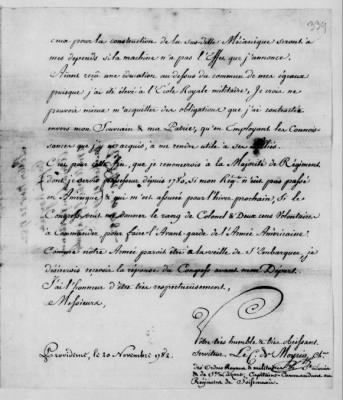 339
ceux pour la construction de la sus-ditte Mécanique seront à
mes depends si la machine n'a pas l'Effet que j'annonce.
Aiant reçu une éducation au dessus du commun de mes égaux
puisque j'ai été élevé à l'Ecole Royale militaire, Je crois ne
pouvoir mieux m'acquitter des obligations que j'ai contractés
envers mon Souverain & ma Patrie, qu'en Employant les Connois-
sances que j'y ai acquis, a me rendre utile à ses
C'est pour cette fin, que je renoncerois à la Majorité de Régiment
dont je depuis 1780, Si mon Rég.t n'eut pas passé
en Amérique & qui m'est assurée pour l'hiver prochain, Si le
Congress veut me donner le rang de Colonel & Deux cent Volontaires
a Commander, pour faire l'Avant-garde de l'Armée Américaine.
Comme notre Armée paroit être à la veille de S'Embarquer, je
désirerois recevoir la réponse du Congress avant mon Départ.
J'ai l'honneur d'être très respectueusement,
Messieurs,
Votre très humble & très obeissant
Serviteur Le C. De
Providence, le 20 Novembre 1782.
des Ordres Royaux & militaires
& de St. Lazare, Capitaine-Commandant au
Régiment de Soissonnais.